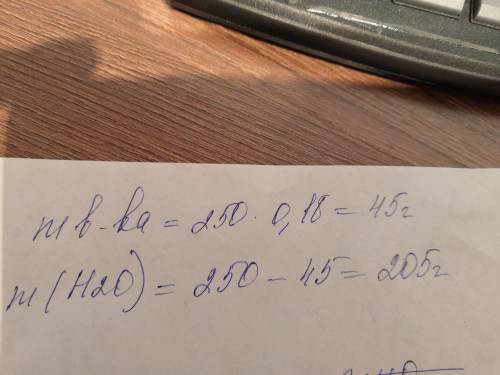 m в-ва = 250 · 0,18 = 45г
m (H2O) = 250 - 45 = 205г